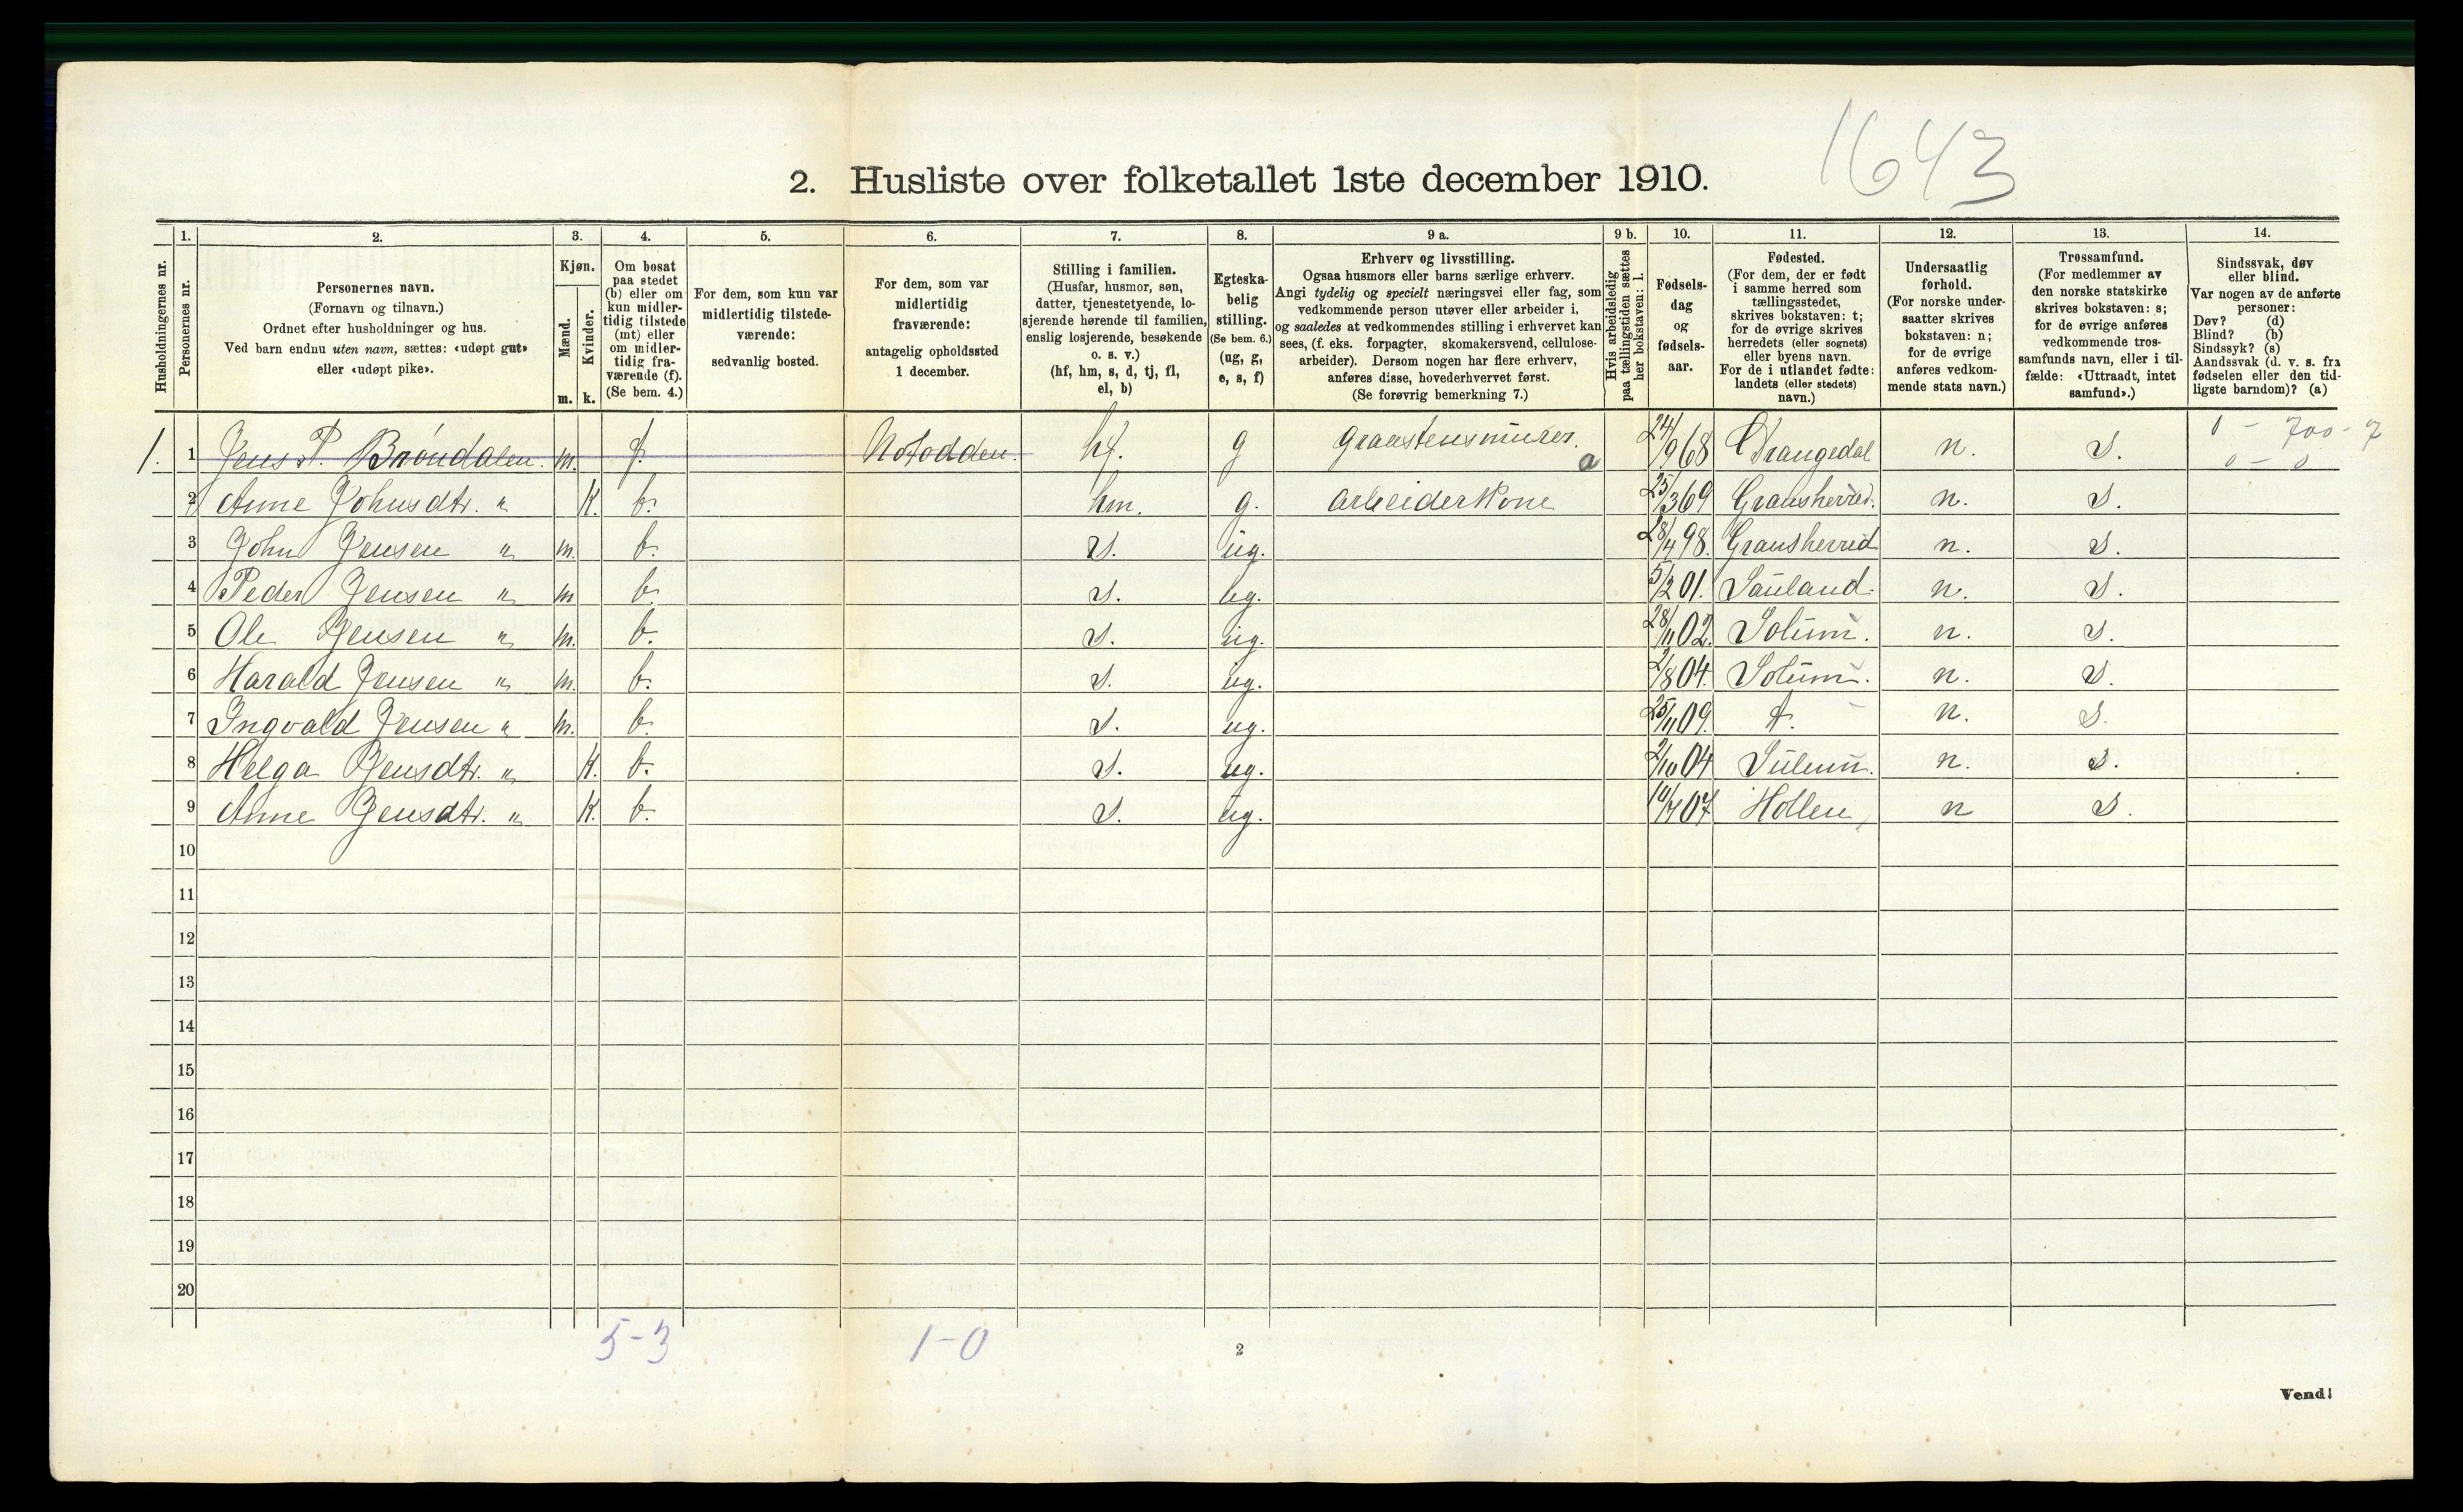 1643
2. Husliste over folketallet 1ste december 1910.
Husholdningernes nr.
1.
Personernes nr.
2.
Personernes navn.
(Fornavn og tilnavn.)
Ordnet efter husholdninger og hus.
Ved barn endnu uten navn, sættes: «udøpt gut»
eller «udøpt pike».
3.
Kjøn.
Mænd.
Kvinder.
m. k.
4.
Om bosat
paa stedet
(b) eller om
kun midler-
tidig tilstede
(mt) eller
om midler-
tidig fra-
værende (f).
(Se bem. 4.)
5.
For dem, som kun var
midlertidig tilstede-
værende:
sedvanlig bosted.
6.
For dem, som var
midlertidig
fraværende:
antagelig opholdssted
1 december.
7.
Stilling i familien.
(Husfar, husmor, søn,
datter, tjenestetyende, lo-
sjerende hørende til familien,
enslig losjerende, besøkende
o. s. v.)
(hf, hm, s, d, tj, fl,
el, b)
8.
Egteska-
belig
stilling.
(Se bem. 6.)
(ug, g,
e, s, f)
9 a.
Erhverv og livsstilling.
Ogsaa husmors eller barns særlige erhverv.
Angi tydelig og specielt næringsvei eller fag, som
vedkommende person utøver eller arbeider i,
og saaledes at vedkommendes stilling i erhvervet kan
sees, (f. eks. forpagter, skomakersvend, cellulose-
arbeider). Dersom nogen har flere erhverv,
anføres disse, hovederhvervet først.
(Se forøvrig bemerkning 7.)
9 b.
Hvis arbeidsledig
paa tællingstiden sættes
her bokstaven: l.
10.
Fødsels-
dag
og
fødsels-
aar.
11.
Fødested.
(For dem, der er født
i samme herred som
tællingsstedet,
skrives bokstaven: t;
for de øvrige skrives
herredets (eller sognets)
eller byens navn.
For de i utlandet fødte:
landets (eller stedets)
navn.)
12.
Undersaatlig
forhold.
(For norske under-
saatter skrives
bokstaven: n;
for de øvrige
anføres vedkom-
mende stats navn.)
13.
Trossamfund.
(For medlemmer av
den norske statskirke
skrives bokstaven: s;
for de øvrige anføres
vedkommende tros-
samfunds navn, eller i til-
fælde: «Uttraadt, intet
samfund».)
14.
Sindssvak, døv
eller blind.
Var nogen av de anførte
personer:
Døv? (d)
Blind? (b)
Sindssyk? (s)
Aandssvak (d. v. s. fra
fødselen eller den tid-
ligste barndom)? (a)
0 - 700 - 7
0 - 0
1. 1 Jens P. Brøndalen. m. f. Notodden. hf. g graastensmurer. a 24/9 68 Drangedal n. S.
2 Anne Johnsdtr. " K. b. hm. g. arbeiderkone 25/3 69 Gransherred. n. S.
3 John Jensen " m. b. S. ug. 28/4 98. Gransherred n. S.
4 Peder Jensen " m b. S. ug. 5/2 01. Sauland. n. S.
5 Ole Jensen " m. b. S. ug. 28/11 02. Solum. n. S.
6 Harald Jensen " m. b. S. ug. 2/8 04. Solum. n. S.
7 Ingvald Jensen " m. b. S. ug. 25/11 09. t. n. S.
8 Helga Jensdtr. " K. b. S. ug. 2/10 04 n. S.
9 Anne Jensdtr. " K. b. S. ug. 07 Hollen n S.
10
11
12
13
14
15
16
17
18
19
20
5-3 1-0
2
Vend!